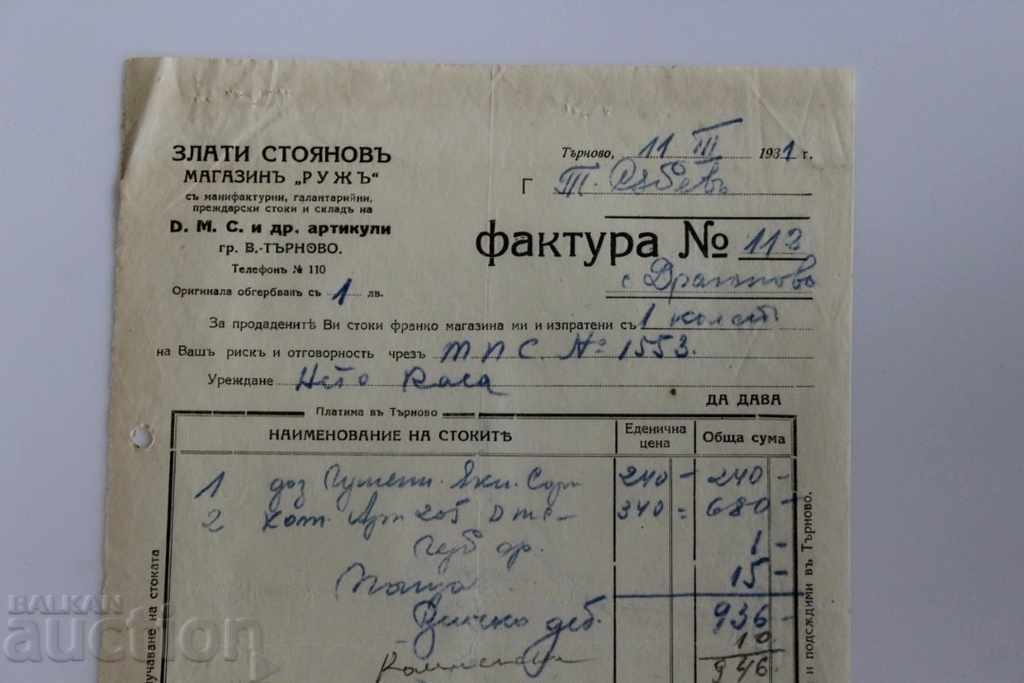 ЗЛАТИ СТОЯНОВЪ
МАГАЗИНЪ „РУЖЪ“
съ манифактурни, галантарийни,
преждарски стоки и складъ на
D. M. C. и др. артикули
гр. В.-ТЪРНОВО.
Телефонъ № 110
Оригинала обгербванъ съ 1 лв.
Търново, 11 III 1931 г.
Г Т.
фактура № 112
с.
За продаденитѣ Ви стоки франко магазина ми и изпратени съ 1 колет
на Вашъ рискъ и отговорность чрезъ Т П С. № 1553.
Уреждане Нето Каса
ДА ДАВА
Платима въ Търново
НАИМЕНОВАНИЕ НА СТОКИТѢ Еденична цена Обща сума
1 доз 240 - 240 -
2 кот. Арт 205 DMC - 340 = 680 -
др. 1 -
Поща 15 -
Всичко деб. 936 -
10
946
лучаване на стоката
и подсѫдими въ Търново.
BALKAN
auction